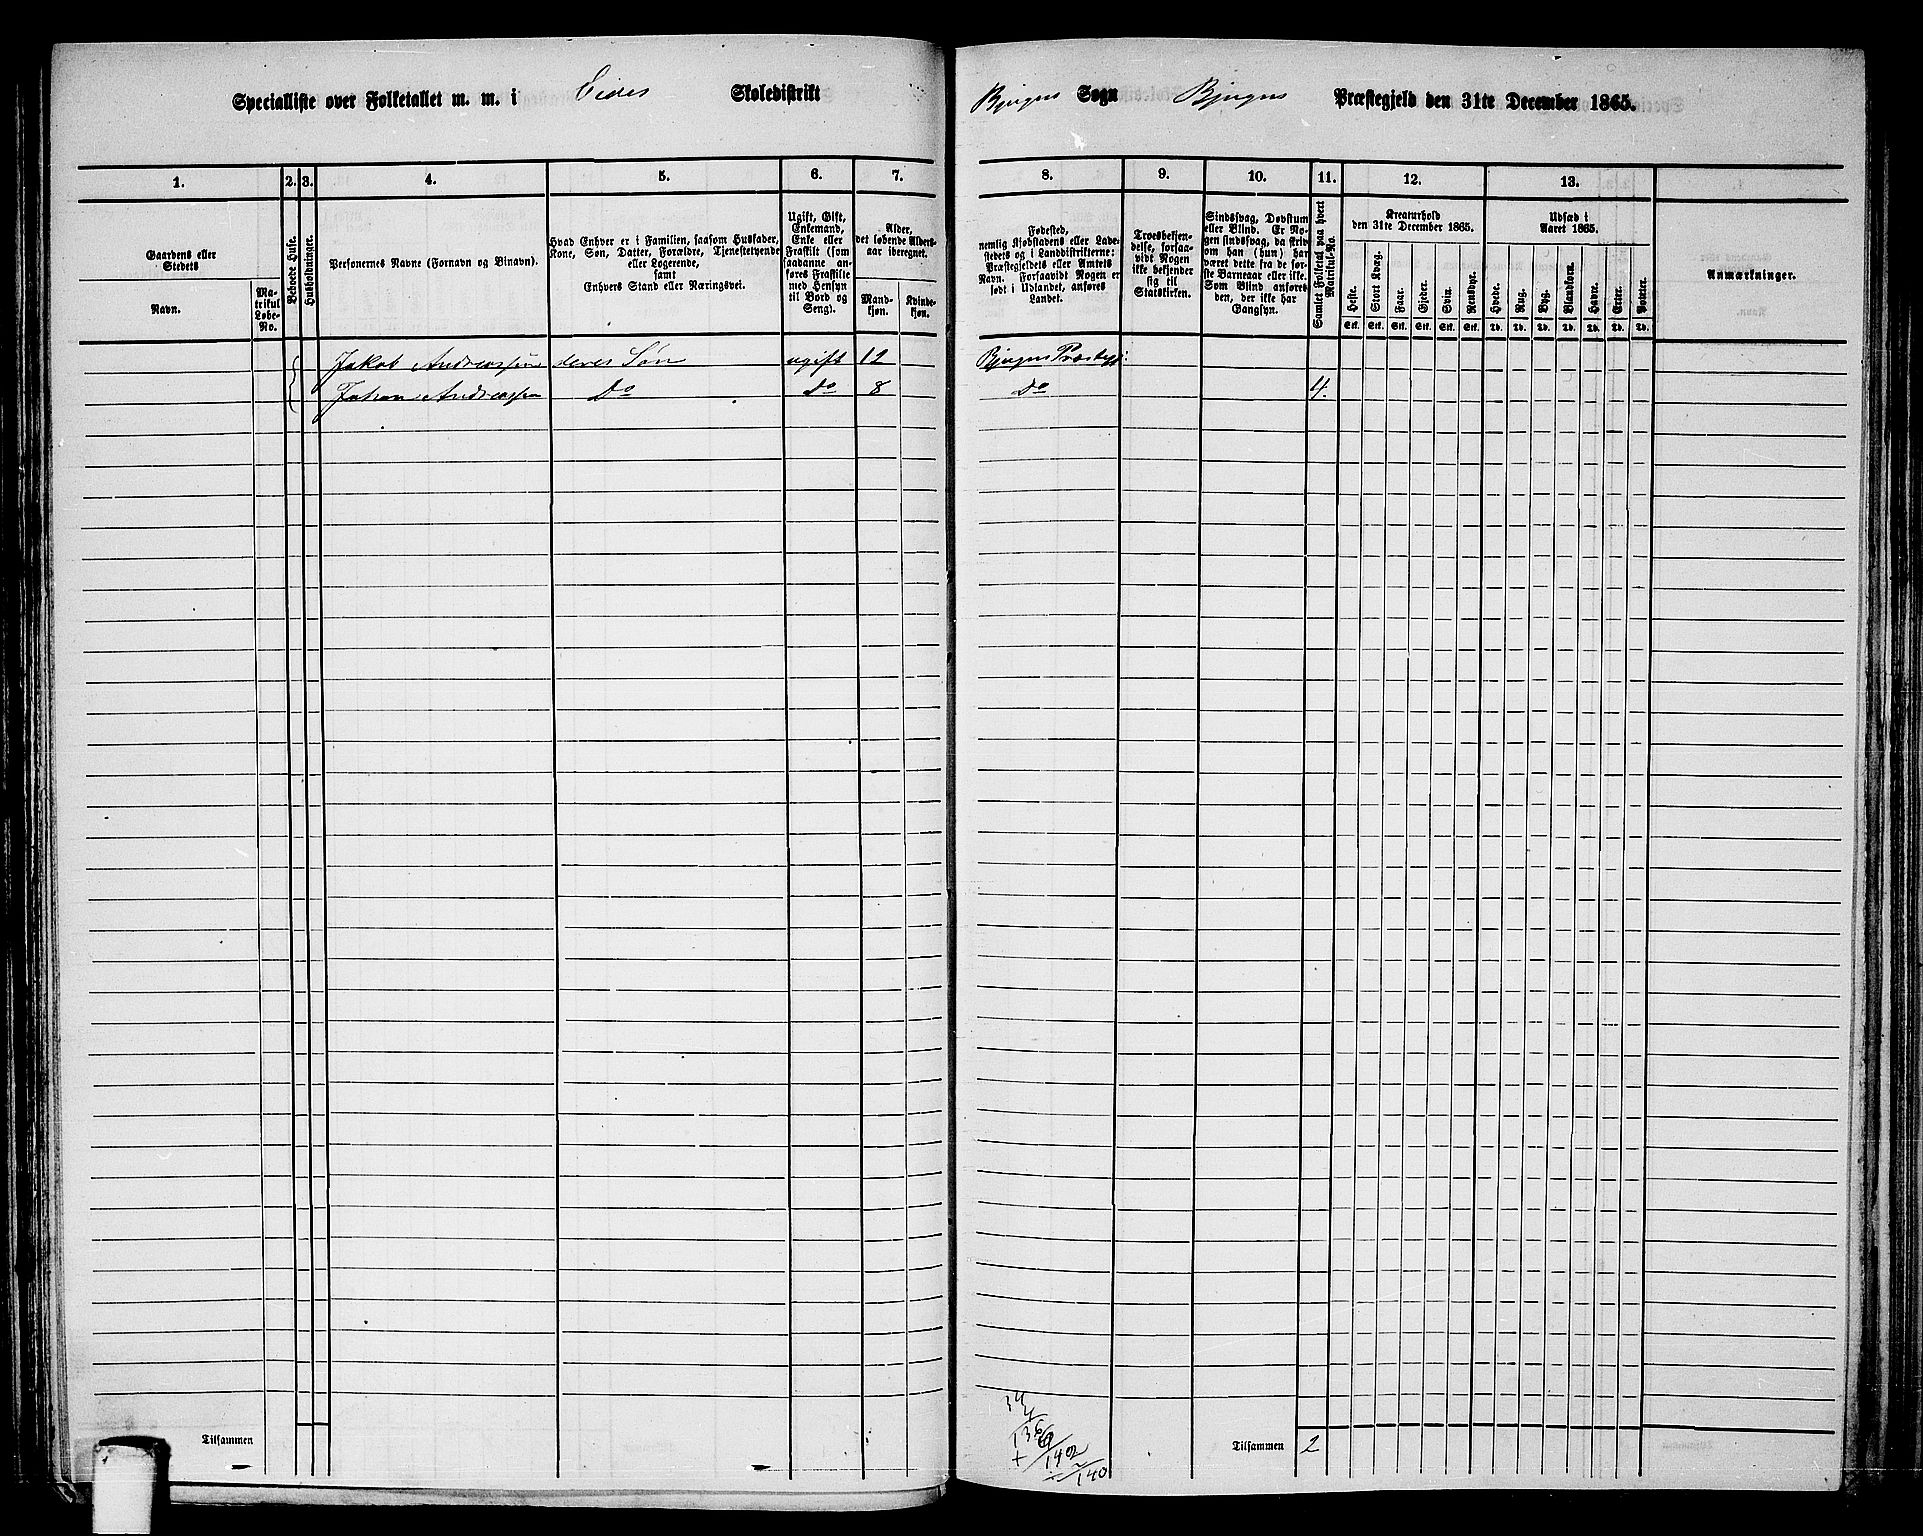 Specialliste over Folketallet m. m. i Eides Skoledistrikt
Bjugns Sogn Bjugns Præstegjeld den 31te December 1865.
1. 2. 3. 4. 5. 6. 7.
8. 9. 10. 11. 12. 13.
Gaardens eller Stedets
Navn.
Matrikul Løbe-No.
Beboede Huse.
Husholdninger.
Personernes Navne (Fornavn og Binavn).
Hvad Enhver er i Familien, saasom Husfader,
Kone, Søn, Datter, Forældre, Tjenestetyende
eller Logerende,
samt
Enhvers Stand eller Næringsvei.
Ugift, Gift,
Enkemand,
Enke eller
Fraskilt (som
saadanne an-
føres Fraskilte
med Hensyn
til Bord og
Seng).
Alder,
det løbende Alders-
aar iberegnet.
Mand-
kjøn.
Kvinde-
kjøn.
Fødested,
nemlig Kjøbstadens eller Lade-
stedets og i Landdistrikterne:
Præstegjeldets eller Amtets
Navn. Forsaavidt Nogen er
født i Udlandet, anføres
Landet.
Troesbekjen-
delse, forsaa-
vidt Nogen
ikke bekjender
sig til
Statskirken.
Sindssvag, Døvstum
eller Blind. Er No-
gen sindssvag, da skriv
om han (hun) har
været dette fra de før-
ste Barneaar eller ikke.
Som Blind anføres
den, der ikke har
Gangsyn.
Samlet Folketal paa hvert
Matrikul-No.
Kreaturhold
den 31te December 1865.
Heste. Stort Kvæg. Faar. Gjeder. Svin. Rensdyr.
Stk. Stk. Stk. Stk. Stk. Stk.
Udsæd i
Aaret 1865.
Hvede. Rug. Byg. Blandkorn. Havre. Erter. Poteter.
Td. Td. Td. Td. Td. Td. Td.
Anmærkninger.
Jakob Andreassen deres Søn ugift 12 Bjugns Præstegj:
Johan Andreassen Do Do 8 Do 4.
Tilsammen
Tilsammen 2
34
136
6
+ 142
2
140